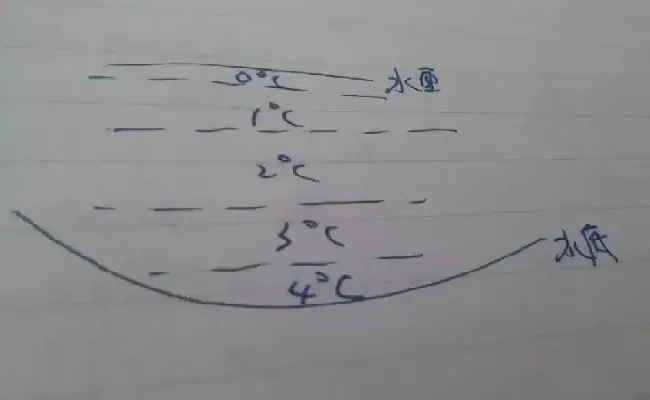 0°C 水面
1°C
2°C
3°C
水底
4°C